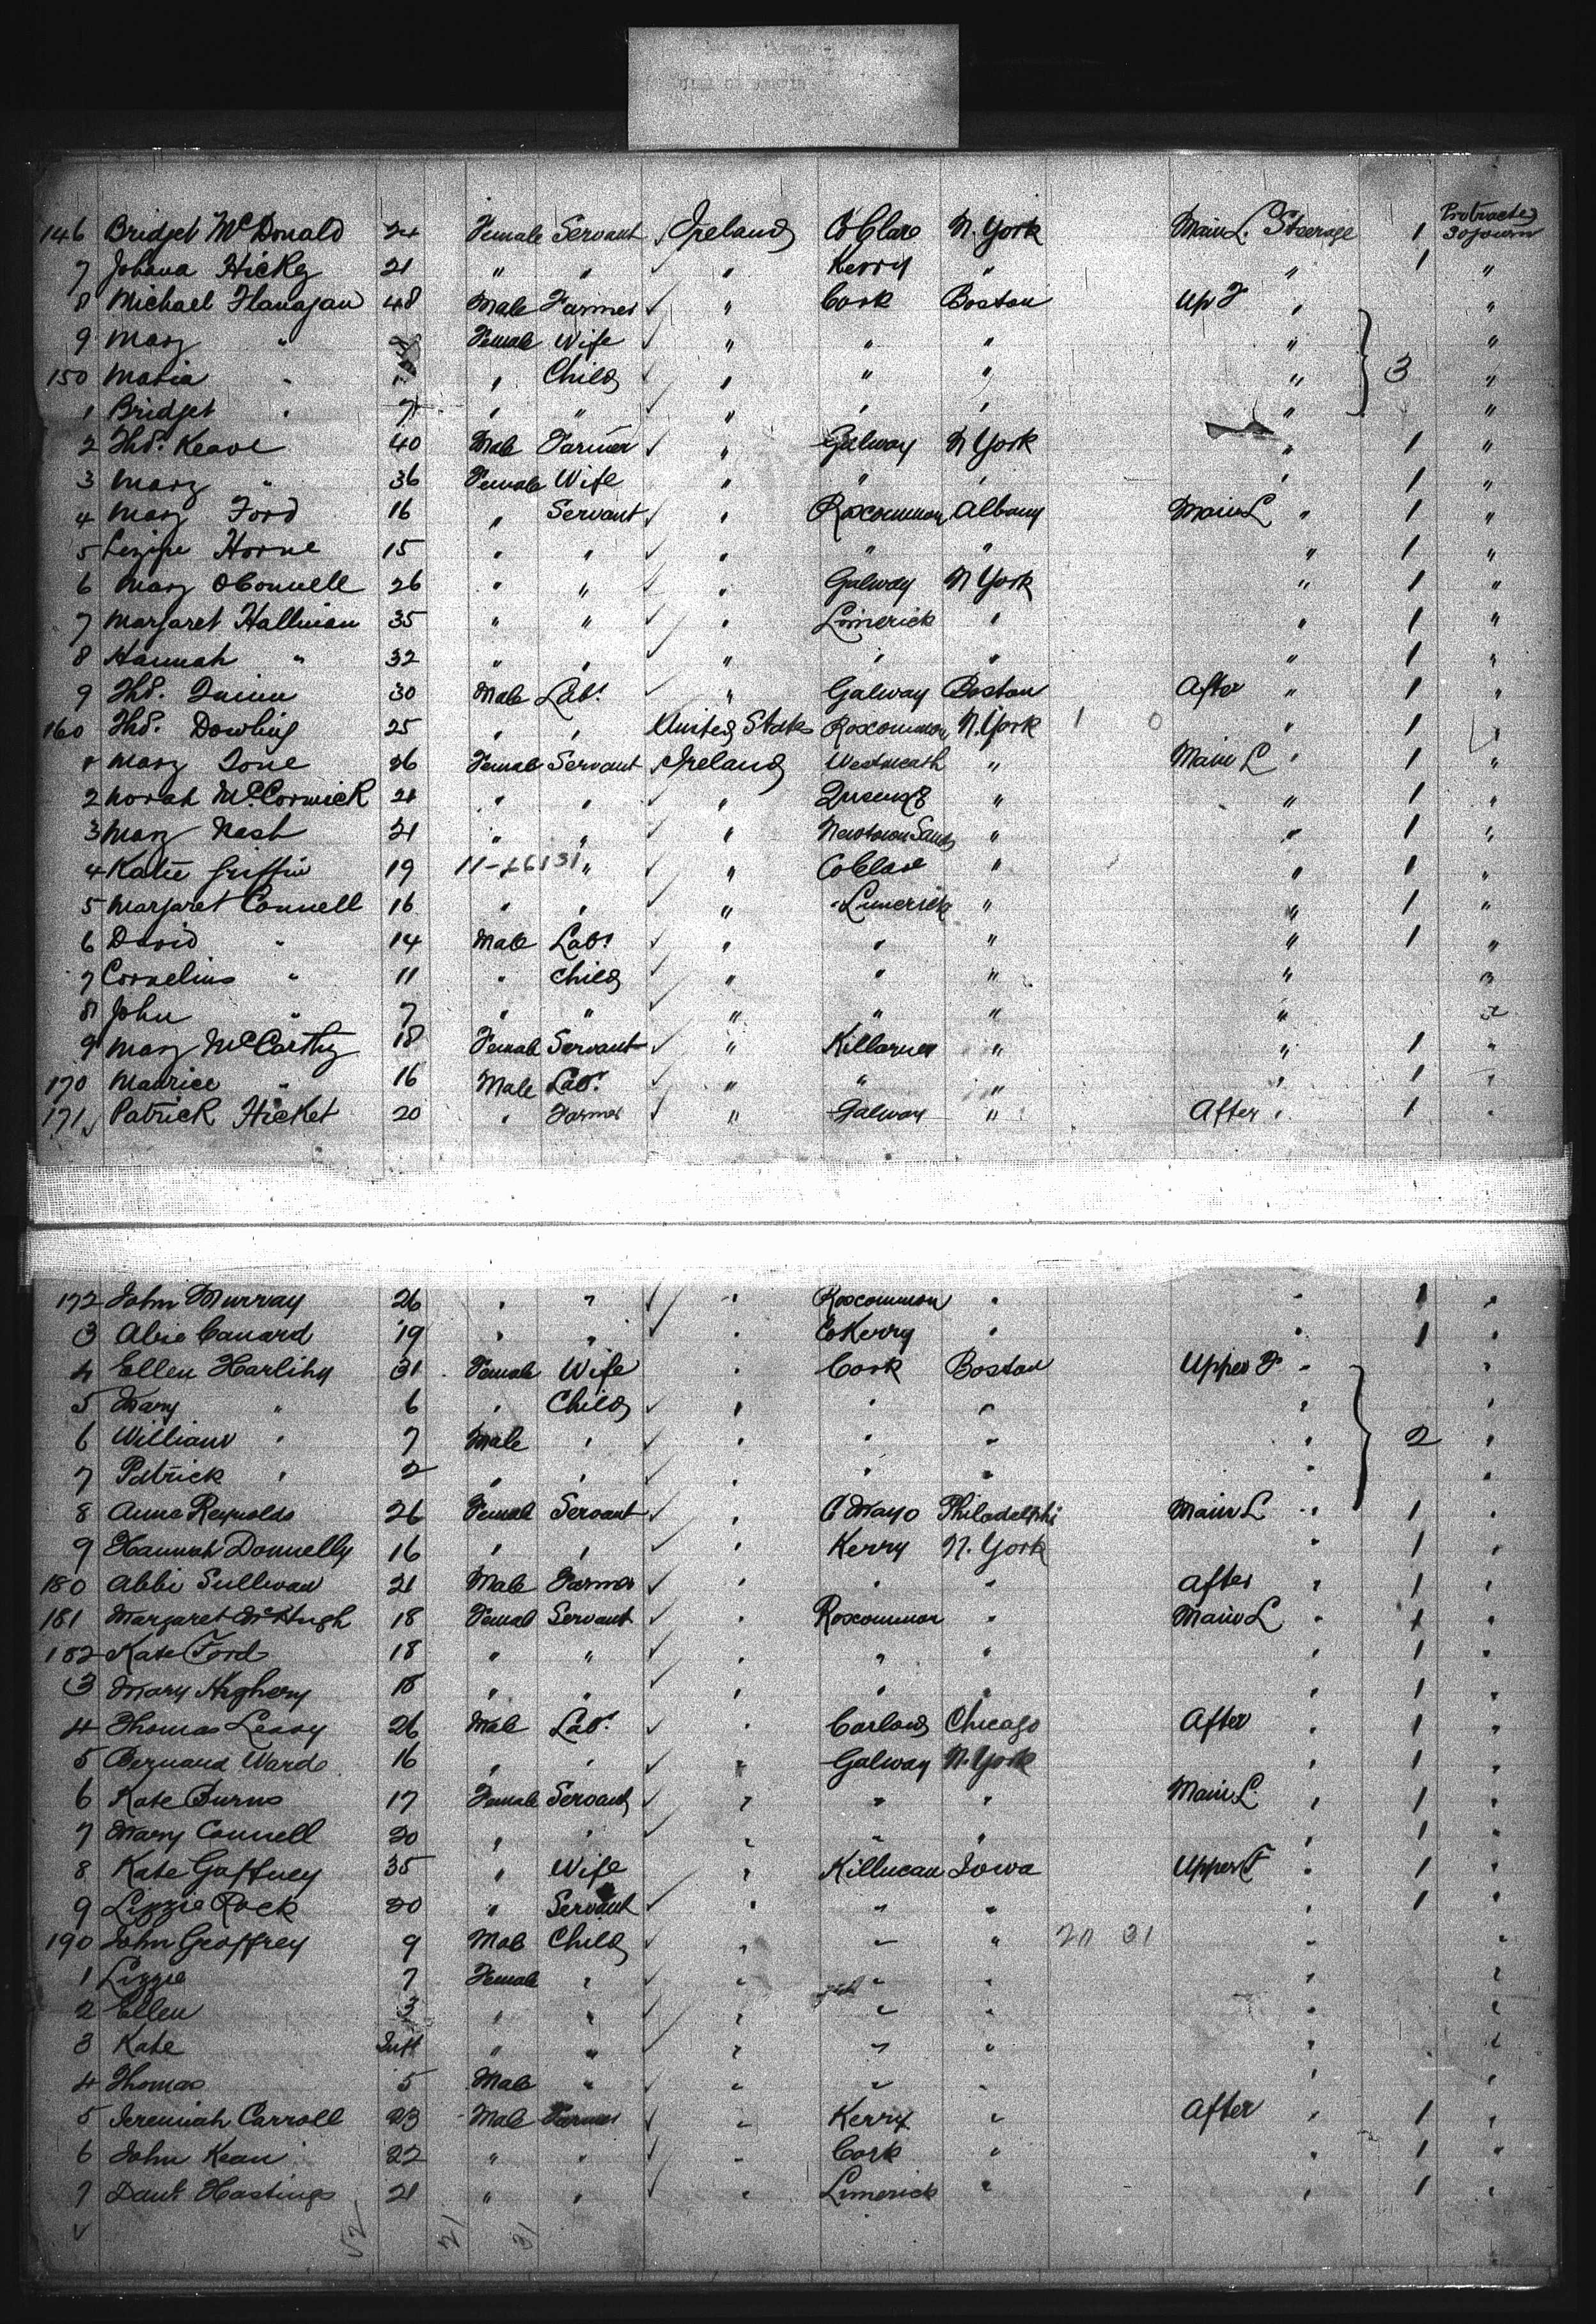 146 Bridget McDonald 24 Female Servant Ireland Co Clare N. York Main L. Steerage 1 Protracted Sojourn
7 Johana Hickey 21 " " " Kerry " " 1 "
8 Michael Flanagan 48 Male Farmer " Cork Boston Up F " "
9 Mary " Female Wife " " " " "
150 Maria " " Child " " " " 3 "
1 Bridget " 7 " " " " " " "
2 Thos. Keave 40 Male Farmer " Galway N York " 1 "
3 Mary " 36 Female Wife " " " " 1 "
4 Mary Ford 16 " Servant " Roscommon Albany Main L " 1 "
5 Horne 15 " " " " " " 1 "
6 Mary OConnell 26 " " " Galway N York " 1 "
7 Margaret Hallinan 35 " " " Limerick " " 1 "
8 Hannah " 32 " " " " " " 1 "
9 Thos. Quinn 30 Male Labr " Galway Boston After " 1 "
160 Thos. Dowling 25 " " United States Roscommon N. York 1 0 " 1 "
1 Mary 26 Female Servant Ireland Westmeath " Main L " 1 "
2 Norah McCormick 21 " " " Queens " " 1 "
3 Mary Nash 21 " " " Newtown Sands " " 1 "
4 Katie Griffin 19 11- 131 " " Co Clare " " 1 "
5 Margaret Connell 16 " " " Limerick " " 1 "
6 David " 14 Male Labr " " " " 1 "
7 Cornelius " 11 " Child " " " " "
8 John " 7 " " " " " " "
9 Mary McCarthy 18 Female Servant " Killarney " " 1 "
170 Maurice " 16 Male Labr " " " " 1 "
171 Patrick Hicket 20 " Farmer " Galway " After " 1 "
172 John Murray 26 " " " Roscommon " " 1 "
3 Canard 19 " " " Co Kerry " " 1 "
4 Ellen Harlihy 31 Female Wife " Cork Boston Upper F " "
5 Mary " 6 " Child " " " " "
6 William " 7 Male " " " " " 2 "
7 Patrick " 2 " " " " " " "
8 Anne Reynolds 26 Female Servant " C Mayo Philadelphi Main L " 1 "
9 Hannah Donnelly 16 " " " Kerry N. York " 1 "
180 Abbi Sullivan 21 Male Farmer " " " After " 1 "
181 Margaret McHugh 18 Female Servant " Roscommon " Main L " 1 "
182 Kate Ford 18 " " " " " " 1 "
3 Mary 18 " " " " " " 1 "
4 Thomas Leavy 26 Male Labr " Carlow Chicago After " 1 "
5 Bernard Ward 16 " " " Galway N. York " 1 "
6 Kate Burns 17 Female Servant " " " Main L. " 1 "
7 Mary Connell 20 " " " " " " 1 "
8 Kate Gaffney 35 " Wife " Killucan Iowa Upper F " 1 "
9 Lizzie Rock 20 " Servant " " " " 1 "
190 John Geoffrey 9 Male Child " " " " "
1 Lizzie 7 Female " " " " " "
2 Ellen 3 " " " " " " "
3 Kate Inft " " " " " " "
4 Thomas 5 Male " " " " " "
5 Jeremiah Carroll 23 Male Farmer " Kerry " After " 1 "
6 John Kean 22 " " " Cork " " 1 "
7 Danl. Hastings 21 " " " Limerick " " 1 "
52 21 31